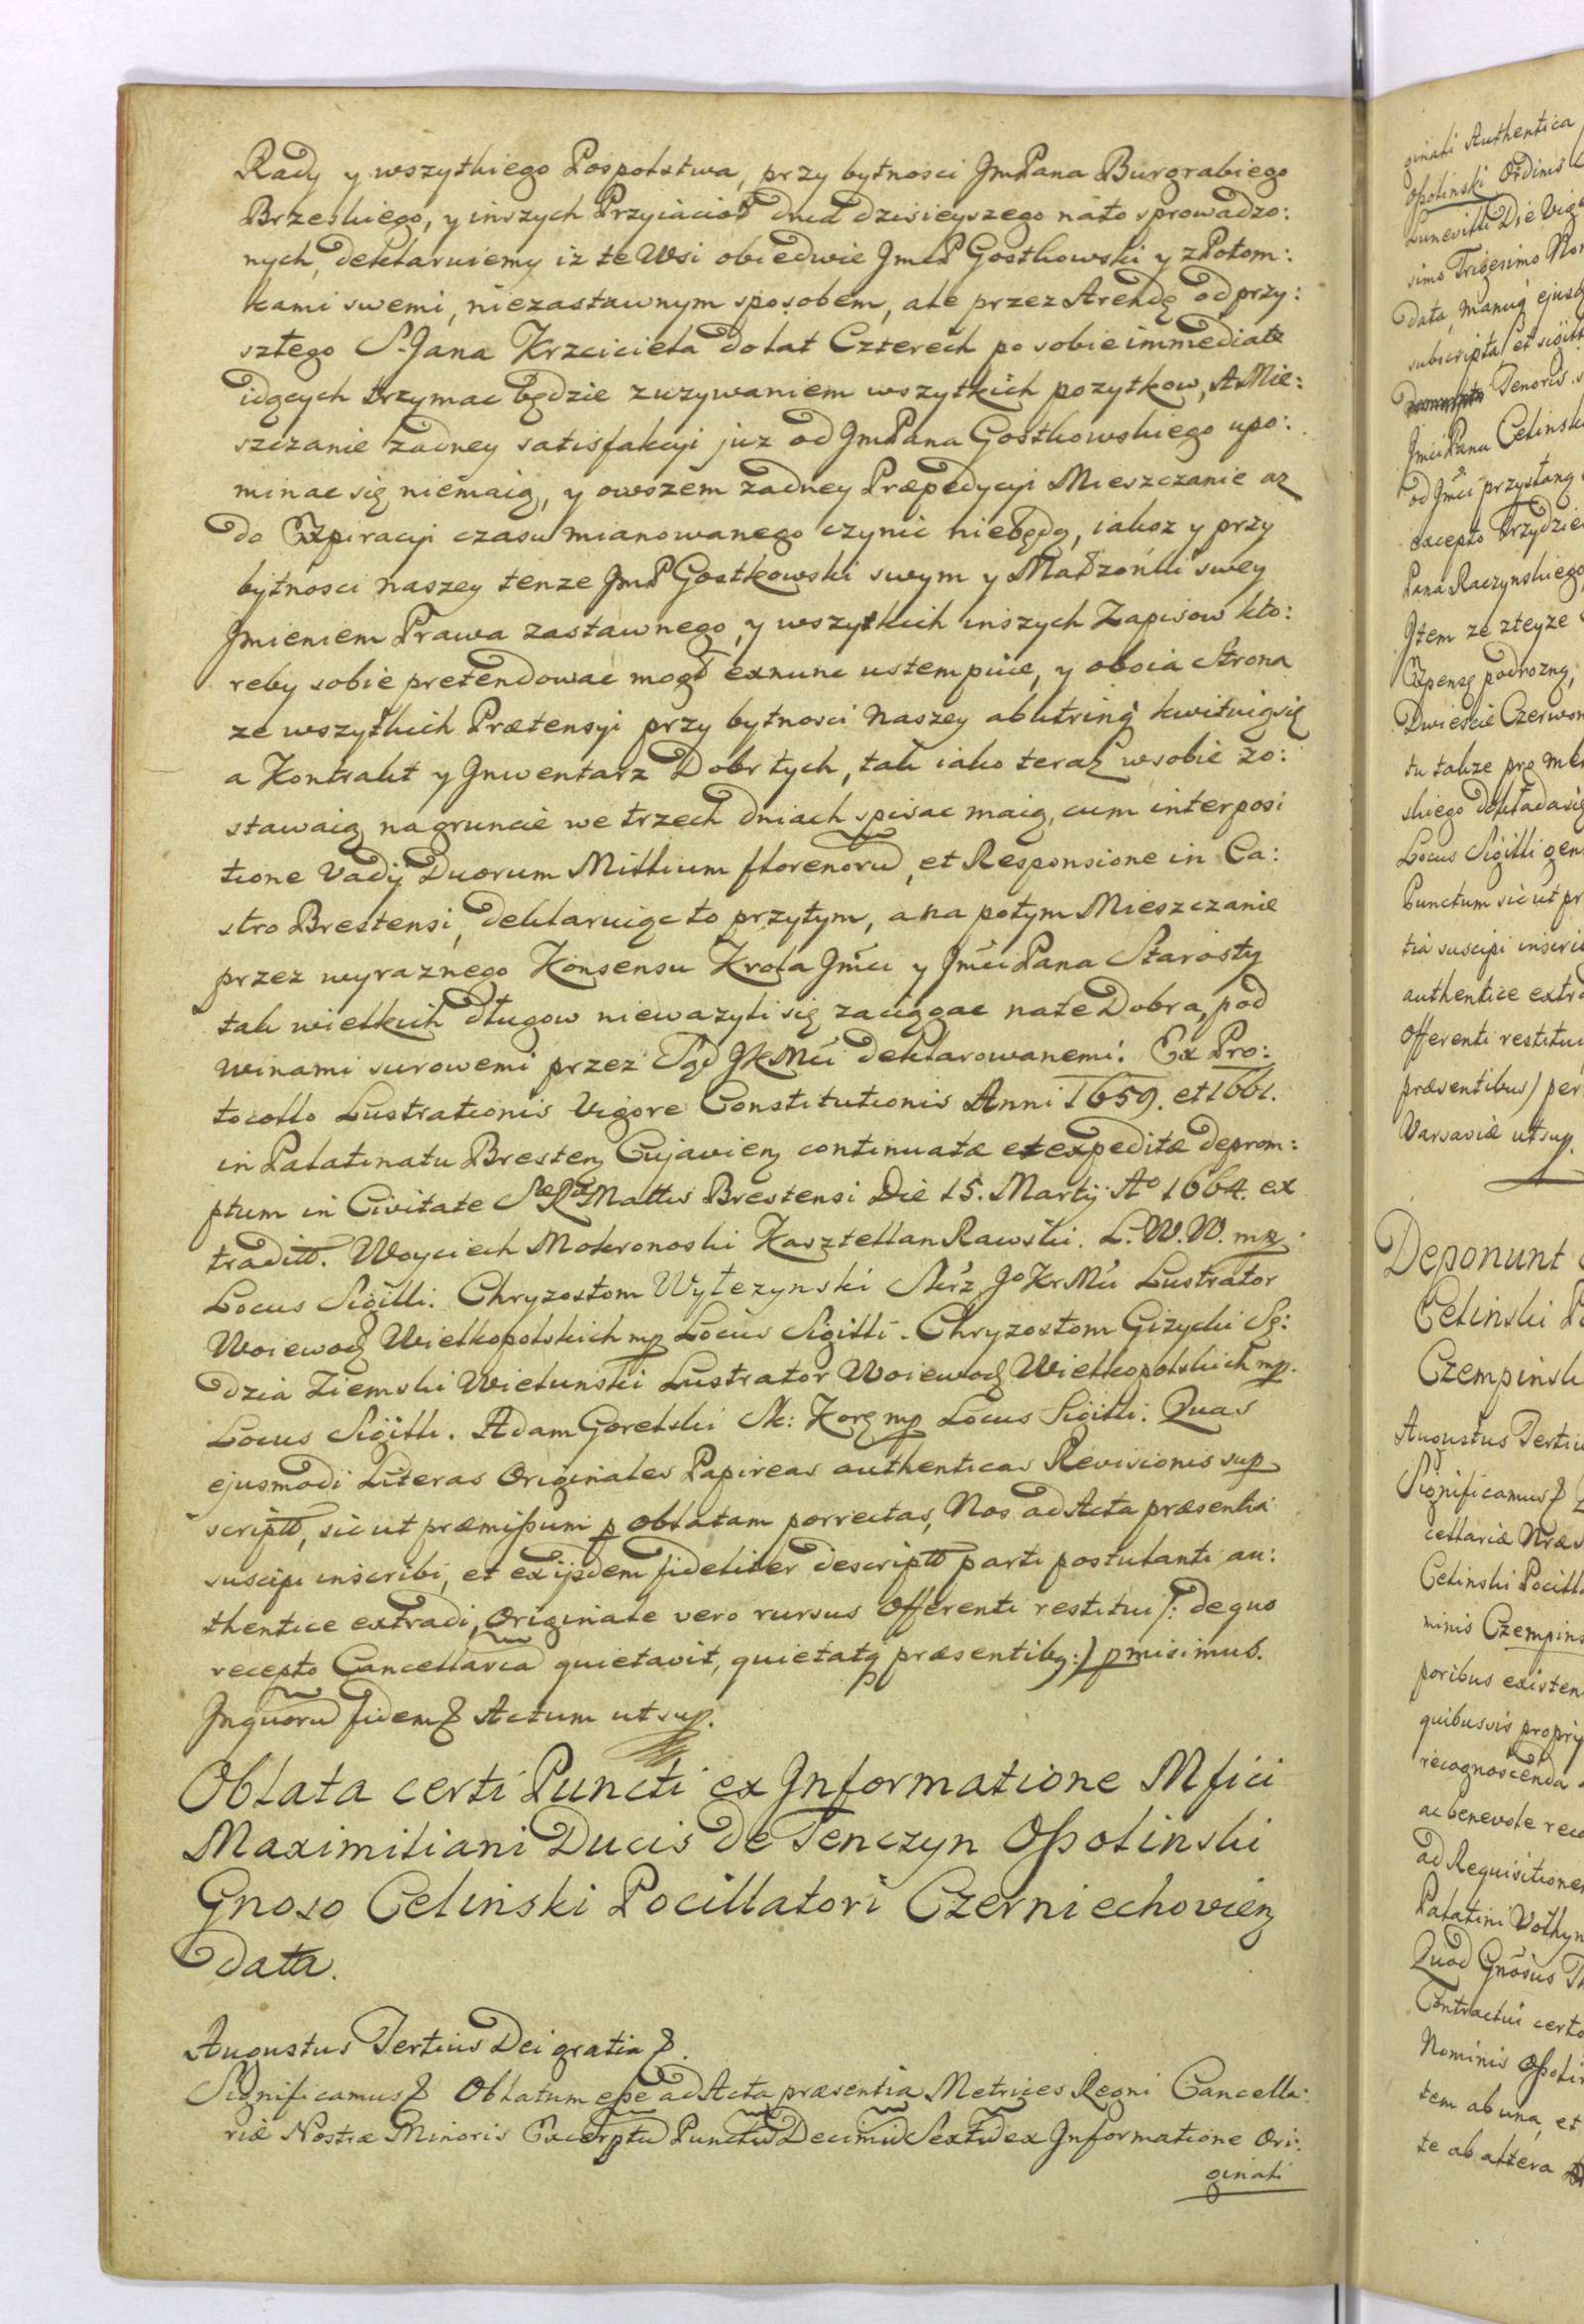 Rady y wszytkiego Pospolstwa, przy bytnosci JmPana Burgrabiego
Brzeskiego, y inszych Przyiacioł dnia dzisieyszego náto sprowadzo:
nych, deklaruiemy iz te Wsi obiedwie JmcP Gostkowski y z Potom:
kami swemi, niezastawnym sposobem, ale przez Arendę od przy:
szłego S. Jana Krzciciela do lat Czterech po sobie immediate
idących trzymac będzie zuzywaniem wszytkich pozytkow, A Mie:
szczanie zadney satisfakcyi juz od JmPana Gostkowskiego upo:
minac się niemaią, y owszem zadney Præpedycyi Mieszczanie az
do Expiracyi czasu mianowanego czynic niebędą, iakoz y przy
bytnosci naszey tenze JmP Gostkowski swym y Małzonki swey
Jmieniem Prawa zastawnego, y wszytkich inszych Zapisow kto:
reby sobie pretendowac mogł exnunc ustempuie, y oboia Strona
ze wszytkich Prætensyi przy bytnosci Naszey abutrinq kwituią się
a Kontrakt y Jnwentarz Dobr tych, tak iako teraz wsobie zo:
stawaią na gruncie we trzech dniach spisac maią, cum interposi
tione Vadij Duorum Millium florenorū, et Responsione in Ca:
stro Brestensi, deklaruiąc to przytym, a na potym Mieszczanie
przez wyraznego Konsensu Krola Jmci y JmciPana Starosty
tak wielkich długow niewazyli się zaciągac na te Dobra, pod
winami surowemi przez Sąd JKMci deklarowanemi. Ex Pro:
tocollo Lustrationis Vigore Constitutionis Anni 1659. et 1661.
in Palatinatu Bresten Cujavien continuatæ et expeditæ deprom:
ptum in Civitate SæRæ Mattis Brestensi Die 15. Martij Ao 1664. ex
tradit. Woyciech Mokronoski Kasztellan Rawski. L. W. W. mp.
Locus Sigilli. Chryzostom Wyłezynski Skrz Jo KrMci Lustrator
Woiewod Wielkopolskich mp Locus Sigilli. Chryzostom Gizycki Sę:
dzia Ziemski Wielunski Lustrator Woiewod Wielkopolskich mp.
Locus Sigilli. Adam Gorelski Sk: Kor mp Locus Sigilli. Quas
ejusmodi Literas Originales Papireas authenticas Revisionis sup
script, sic ut præmissum p Oblatam porrectas, Nos ad Acta præsentia
suscipi inscribi, et ex ijsdem fideliter descript parti postulanti au:
thentice extradi, Originale vero rursus Offerenti restitui /: de quo
recepto Cancellariā quietavit, quietatq præsentibq :/ pmisimus.
Jnquorū fidem & Actum ut sup.
Oblata certi Puncti ex Jnformatione Mfici
Maximiliani Ducis de Tenczyn Ossolinski
Gnoso Celinski Pocillatori Czerniechovien
data.
Augustus Tertius Dei gratia &.
Significamus & Oblatum esse ad Acta præsentia Metrices Regni Cancella:
riæ Nostræ Minoris Excerptū Punctū Decimū Sextū ex Jnformatione Ori:
ginali
ginali Authentica
Opolinski Ordinis
Lunevilli Die Vige
simo Trigesimo Non
data, manuq ejusd
subscripta, et sigill
Tenoris.
JmciPana Celinsk
od Jmci przysłang
excepto trzydzie
Pana Raczynskiego
Jtem ze zteyze
Expensę podrozną,
Dwiescie Czerwon
tu takze pro me
skiego dokładasię
Locus Sigilli gen
Punctum sic ut pr
tia suscipi inscri
authentice extra
Offerenti restitui
præsentibus) per
Varsaviæ ut sup.
Deponunt
Celinski Po
Czempinsk
Augustus Tertiu
Significamus &
cellariæ Nræ
Celinski Pocill
minis Czempins
poribus existen
quibusvis proprij
recognoscenda
ac benevole rec
ad Requisitione
Palatini Volhyn
Quod Gnosus
Contractui certo
Nominis Ossoli
tem ab una, et
te ab altera